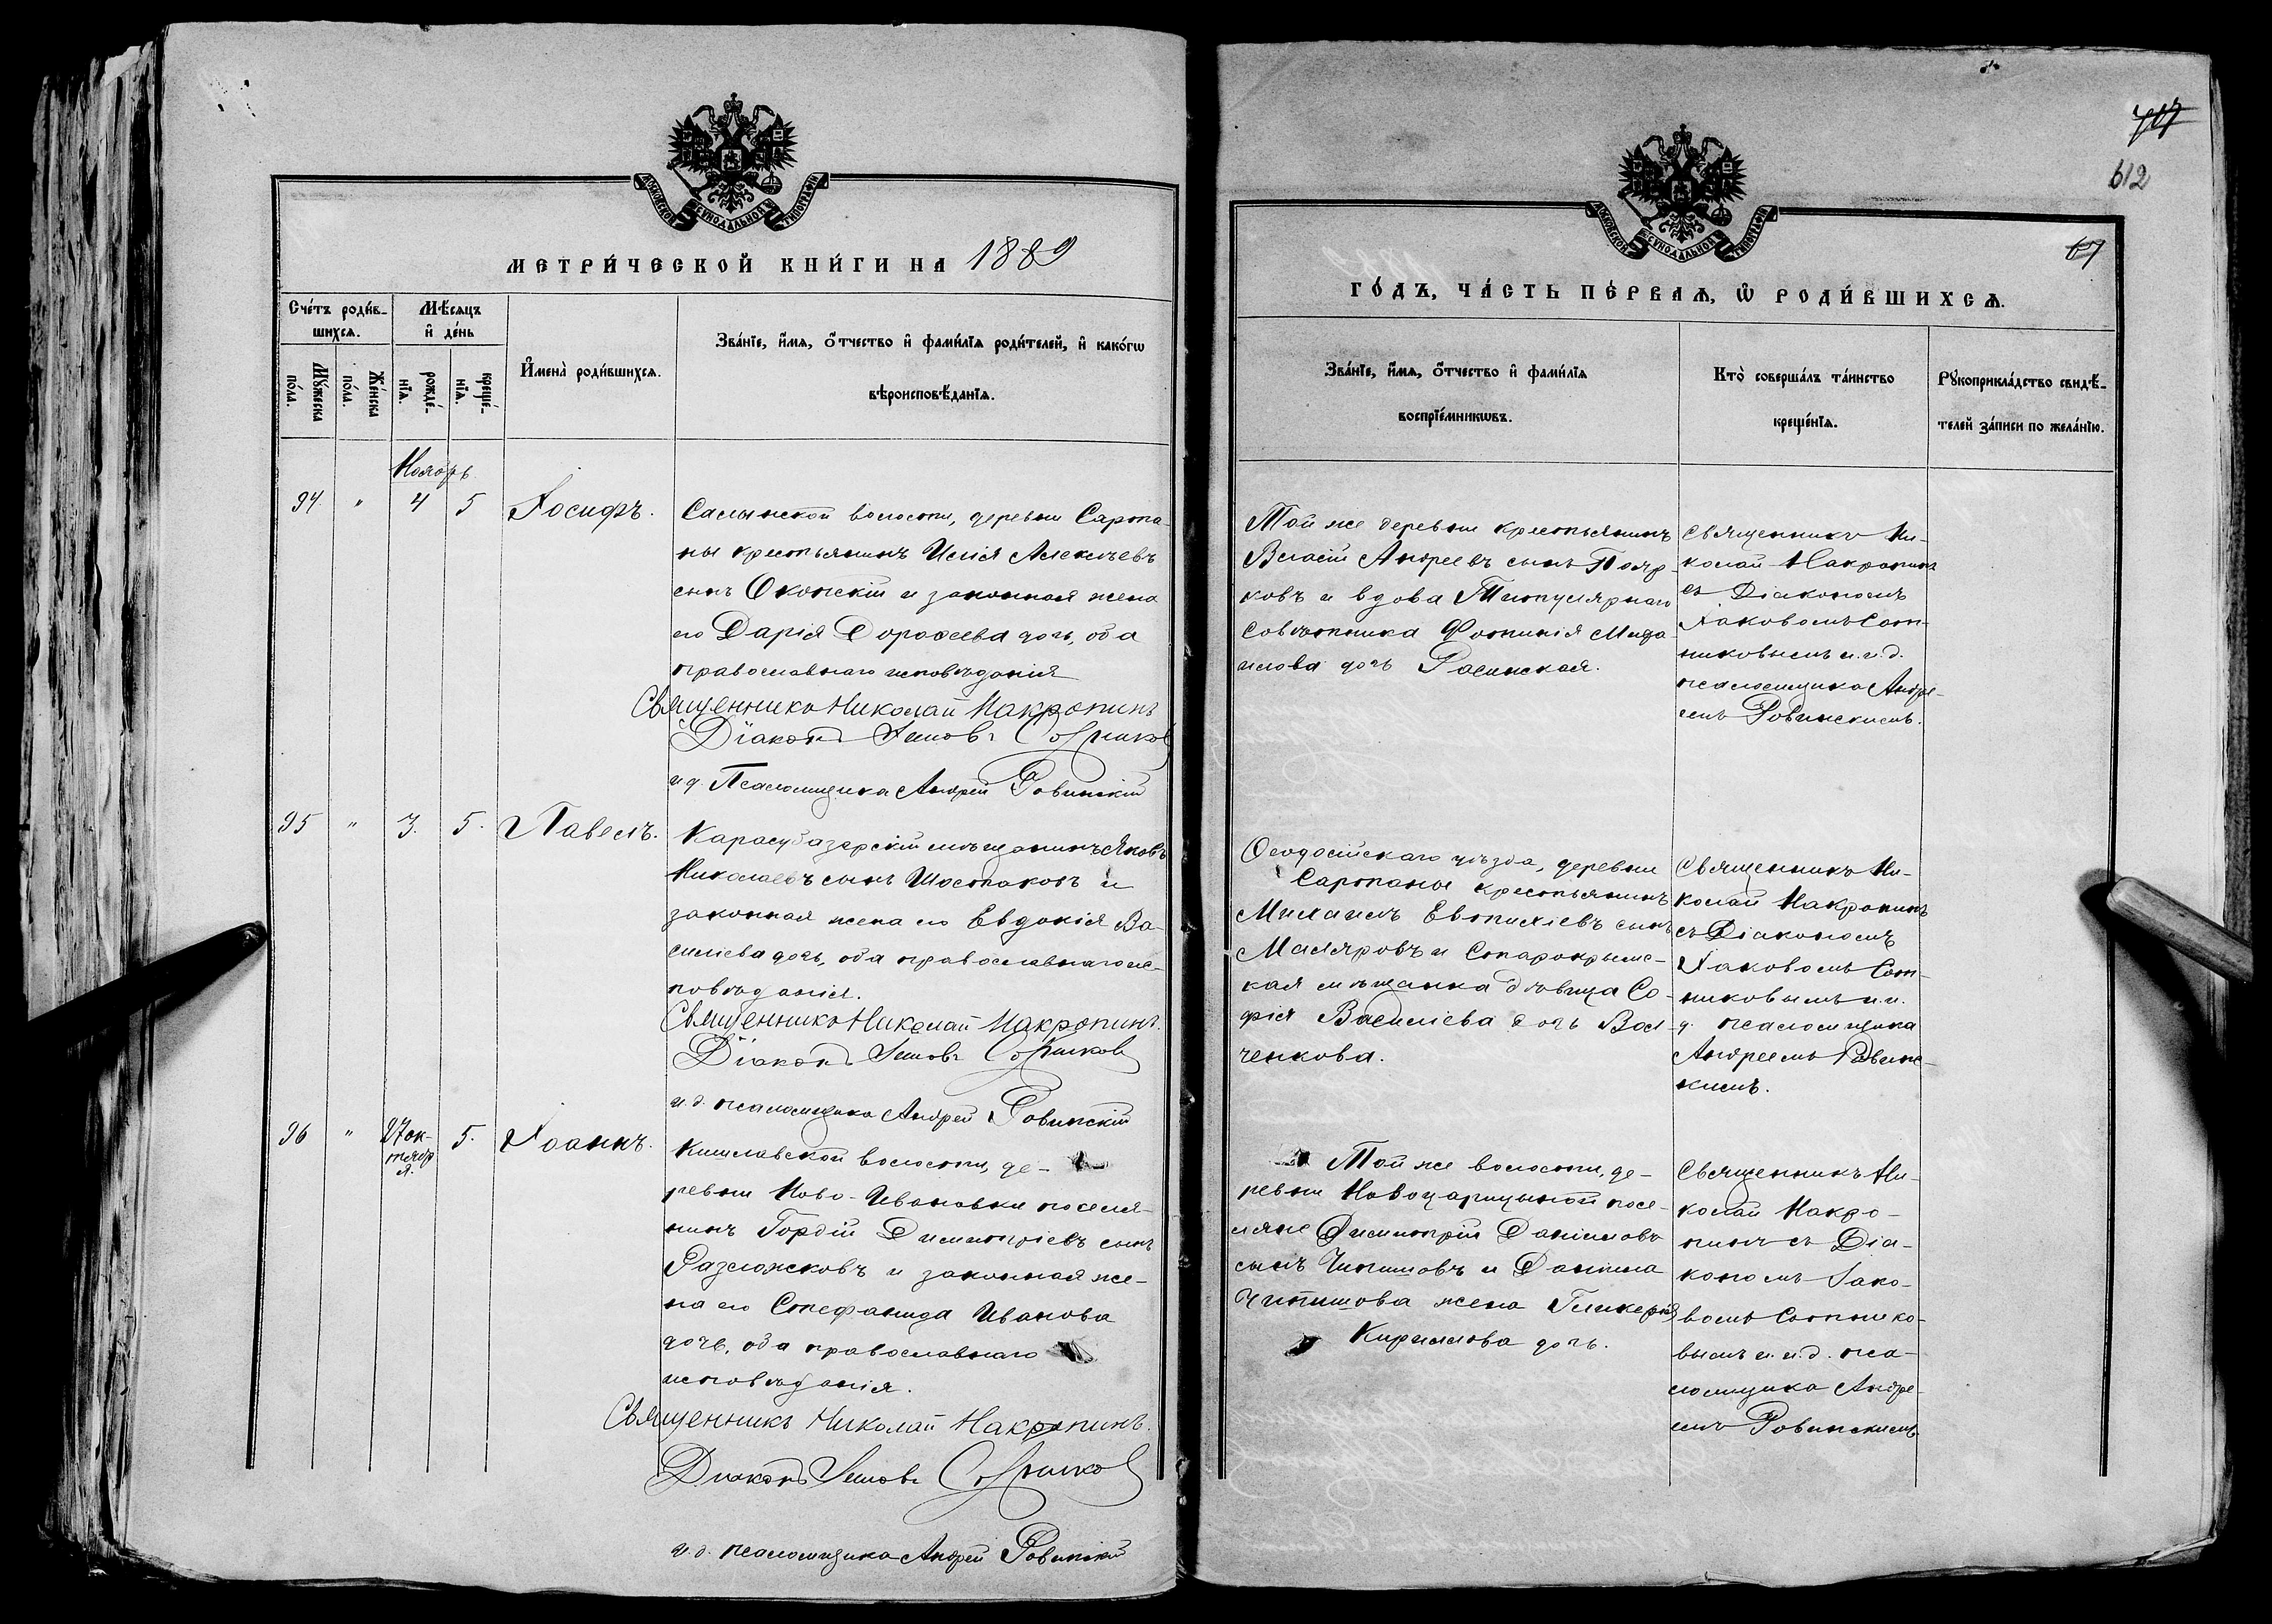 МОСКОВСКОЙ СѴНОДАЛЬНОЙ ТИПОГРАФІИ
МЕТРИ́ЧЕСКОЙ КНИ́ГИ НА 1889
Сче́тъ роди́в-
шихсѧ.
Мѣ́сѧцъ
и҆ де́нь
Мꙋ́жеска
по́ла.
Же́нска
по́ла.
рожде́-
нїѧ.
креще́-
нїѧ.
И҆мена̀ роди́вшихсѧ.
Зва́нїе, и҆́мѧ, ѻ҆́тчество и҆ фами́лїѧ роди́телей, и҆ како́гѡ
вѣроисповѣ́данїѧ.
Ноябрь
94 " 4 5 Іосифъ.
Салынской волости, деревни Сарпа-
ны крестьянинъ Илія Алексѣевъ
сынъ Оконскій и законная жена
его Дарія Дороѳеева дочь, оба
православнаго исповѣданія
Священникъ Николай Макропинъ
Діаконъ Іаковъ Сотниковъ
и д. Псаломщика Андрей Ровинскій
95 " 3. 5. Павелъ.
Карасубазарскій мѣщанинъ Яковъ
Николаевъ сынъ Шостаковъ и
законная жена его Евдокія Ва-
силіева дочь, оба православнаго ис-
повѣданія.
Священникъ Николай Макропинъ.
Діаконъ Іаковъ Сотниковъ
и. д. псаломщика Андрей Ровинскій
96 " 27 ок-
тябр
я. 5. Іоаннъ.
Кишлавской волости, де-
ревни Ново-Ивановки поселя-
нинъ Гордій Димитріевъ сынъ
Разсложсковъ и законная же-
на его Стефанида Иванова
дочь, оба православнаго
исповѣданія.
Священникъ Николай Макропинъ.
Діаконъ Іаковъ Сотниковъ
и. д. псаломщика Андрей Ровинскій
707
612
67
МОСКОВСКОЙ СѴНОДАЛЬНОЙ ТИПОГРАФІИ
ГО́ДЪ, ЧА́СТЬ ПЕ́РВАѦ, Ѡ҆ РОДИ́ВШИХСѦ.
Зва́нїе, и҆́мѧ, ѻ҆́тчество и҆ фами́лїѧ
воспрїе́мникѡвъ.
Кто̀ соверша́лъ та́инство
креще́нїѧ.
Рꙋкоприкла́дство свидѣ́-
телей за́писи по жела́нїю.
Той же деревни крестьянинъ
Власій Андреевъ сынъ Пояр-
ковъ и вдова Титулярнаго
Совѣтника Фотинія Мида
илова дочь Расинская.
Священникъ Ни-
колай Макропинъ
съ Діакономъ
Іаковомъ Сот-
никовымъ и. и. д.
псаломщика Андре-
емъ Ровинскимъ.
Ѳеодосійскаго уѣзда, деревни
Сарпаны крестьянинъ
Михаилъ Евтихіевъ сынъ
Маляровъ и Старокрымс-
кая мѣщанка дѣвица Со-
фія Василіева дочь Вол-
ченкова.
Священникъ Ни-
колай Макропинъ
съ Діакономъ
Іаковомъ Сот-
никовымъ и. и.
д. псаломщика
Андреемъ Ровинс-
кимъ.
Той же волости, де-
ревни Новоцарицыной посе-
ляне Димитрій Даниловъ
сынъ Чипишовъ и Данила
Чипишова жена Гликерія
Кириллова дочь.
Священникъ Ни-
колай Макро-
пинъ съ Діа-
кономъ Іако-
вомъ Сотнико-
вымъ и. и. д. пса-
ломщика Андре-
емъ Ровинскимъ.